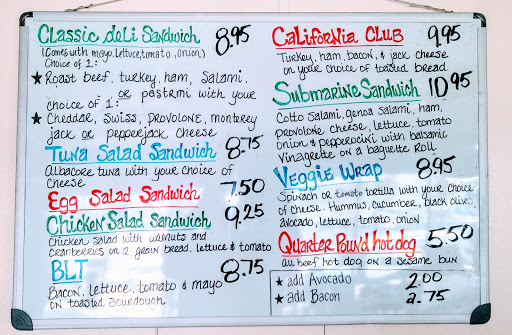 Classic deli Sandwich 8.95
(Comes with mayo, lettuce, tomato, onion)
Choice of 1:
★ Roast beef, turkey, ham, Salami,
or pastrmi with your
choice of 1:
★ Cheddar, Swiss, Provolone, monterey
jack or pepperjack cheese
Tuna Salad Sandwich 8.75
Albacore tuna with your choice of
cheese
Egg Salad Sandwich 7.50
Chicken Salad Sandwich 9.25
Chicken salad with walnuts and
cranberries on 12 grain bread, lettuce & tomato
BLT 8.75
Bacon, lettuce, tomato & mayo
on toasted sourdough
California Club 9.95
Turkey, ham, bacon, & jack cheese
on your choice of toasted bread
Submarine Sandwich 10.95
Cotto salami, genoa salami, ham,
provolone cheese, lettuce, tomato
onion & pepperocini with balsamic
vinagrette on a baguette Roll
Veggie Wrap 8.95
Spinach or tomato tortilla with your choice
of cheese. Hummus, cucumber, black olive,
avocado, lettuce, tomato, onion
Quarter Pound hot dog 5.50
all beef hot dog on a sesame bun
★ add Avocado 2.00
★ add Bacon 2.75